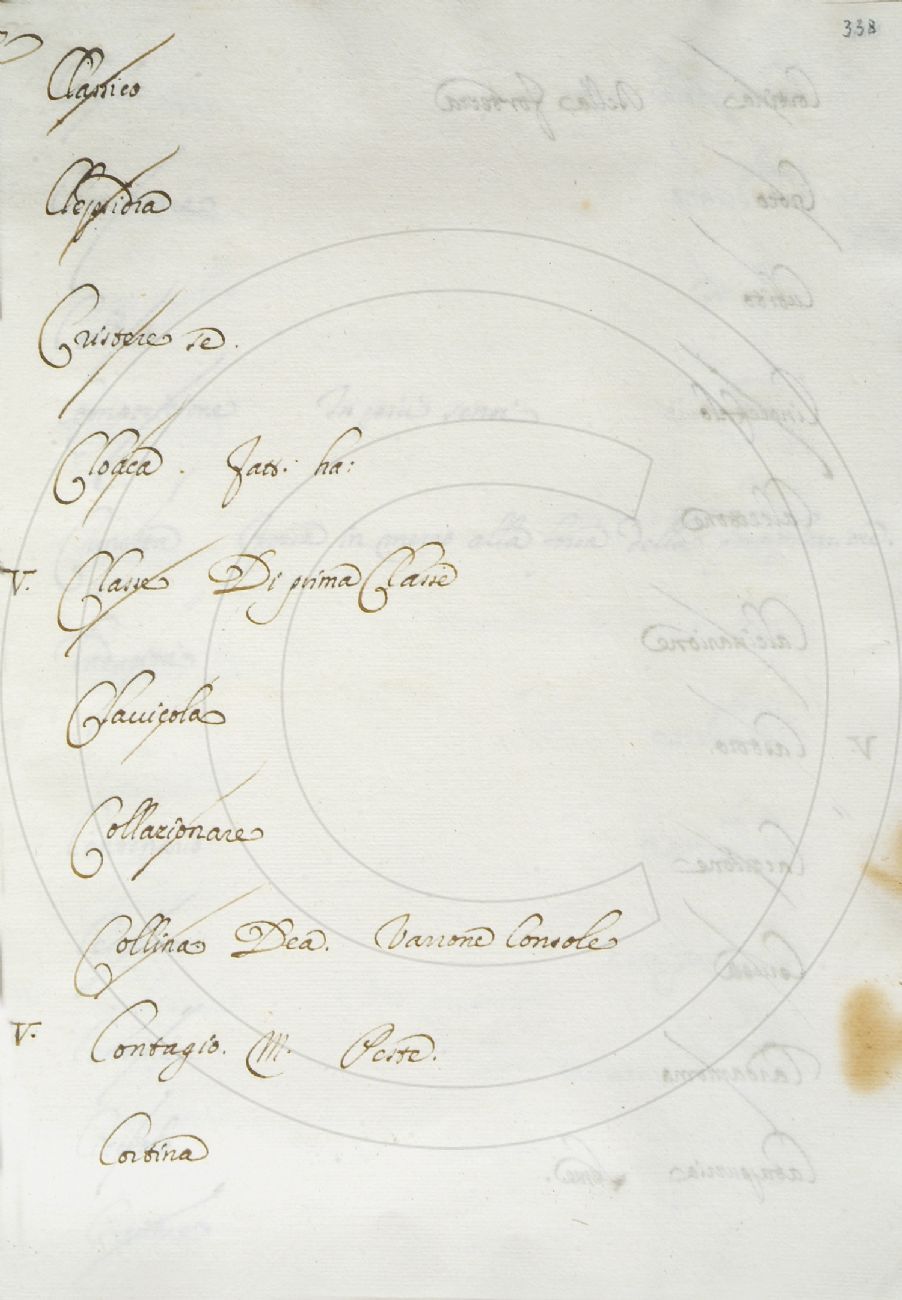 338
Classico
Clepsidra
Cristere se.
Cloaca. Fatt. ha:
V. Classe Di prima Classe
Clavicola
Collazionare
Collina Dea. Varrone Console
V. Contagio. M. Peste.
Cortina